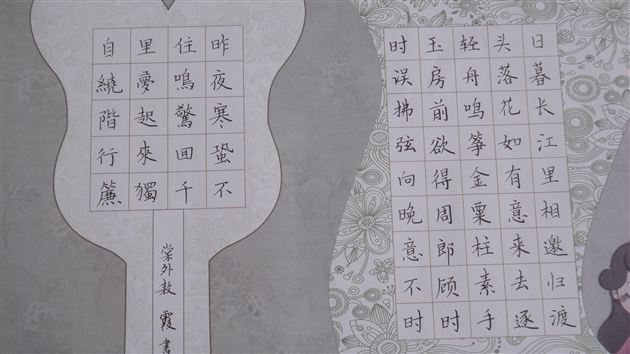 日暮长江里相邀归渡
头落花如有意来去逐
轻舟鸣筝金粟柱素手
玉房前欲得周郎顾时
时误拂弦向晚意不时
昨夜寒蛩不
住鳴驚囬千
里夢起來獨
自繞階行簾
棠外敖霞書